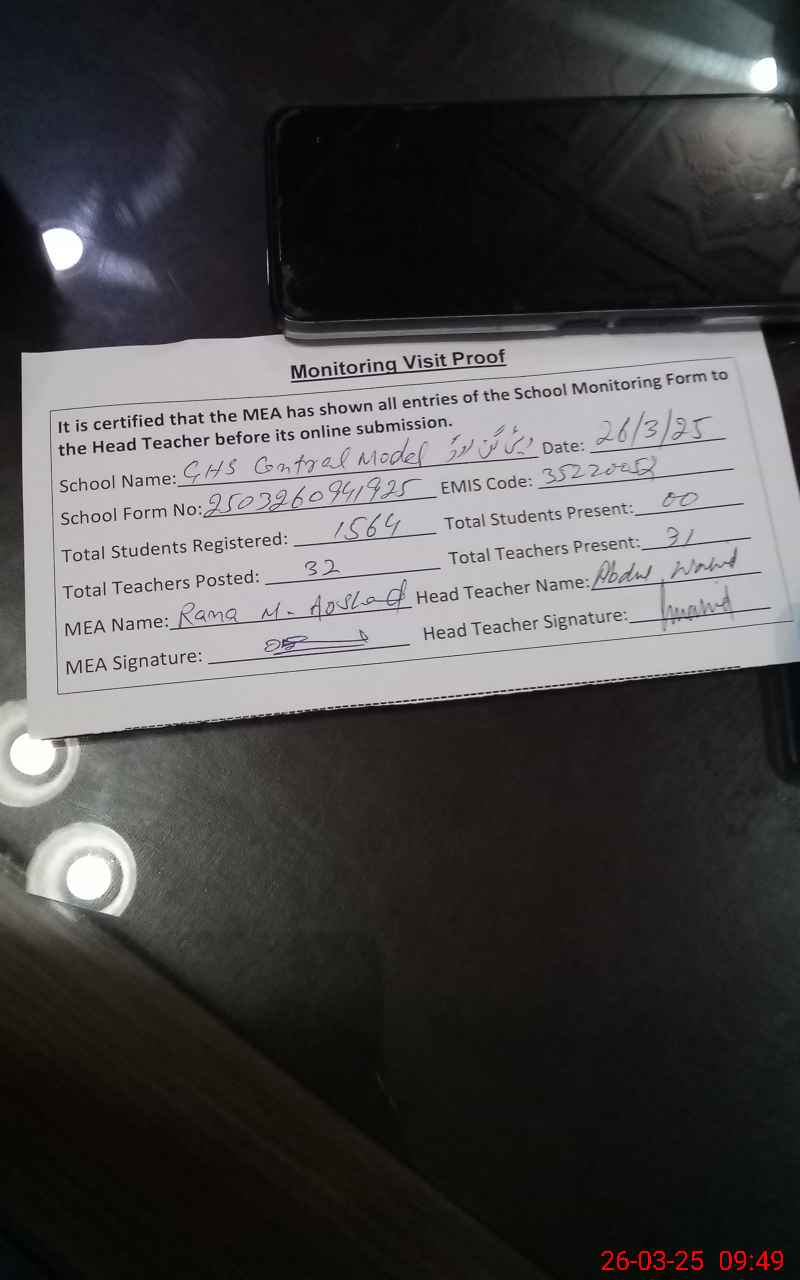 Monitoring Visit Proof
It is certified that the MEA has shown all entries of the School Monitoring Form to
the Head Teacher before its online submission.
School Name: GHS Central Model Date: 26/3/25
School Form No: 2503260941925 EMIS Code: 35220052
Total Students Registered: 1564 Total Students Present: 00
Total Teachers Posted: 32 Total Teachers Present: 31
MEA Name: Rana M. Head Teacher Name: Abdul Wahid
MEA Signature: Head Teacher Signature:
26-03-25 09:49